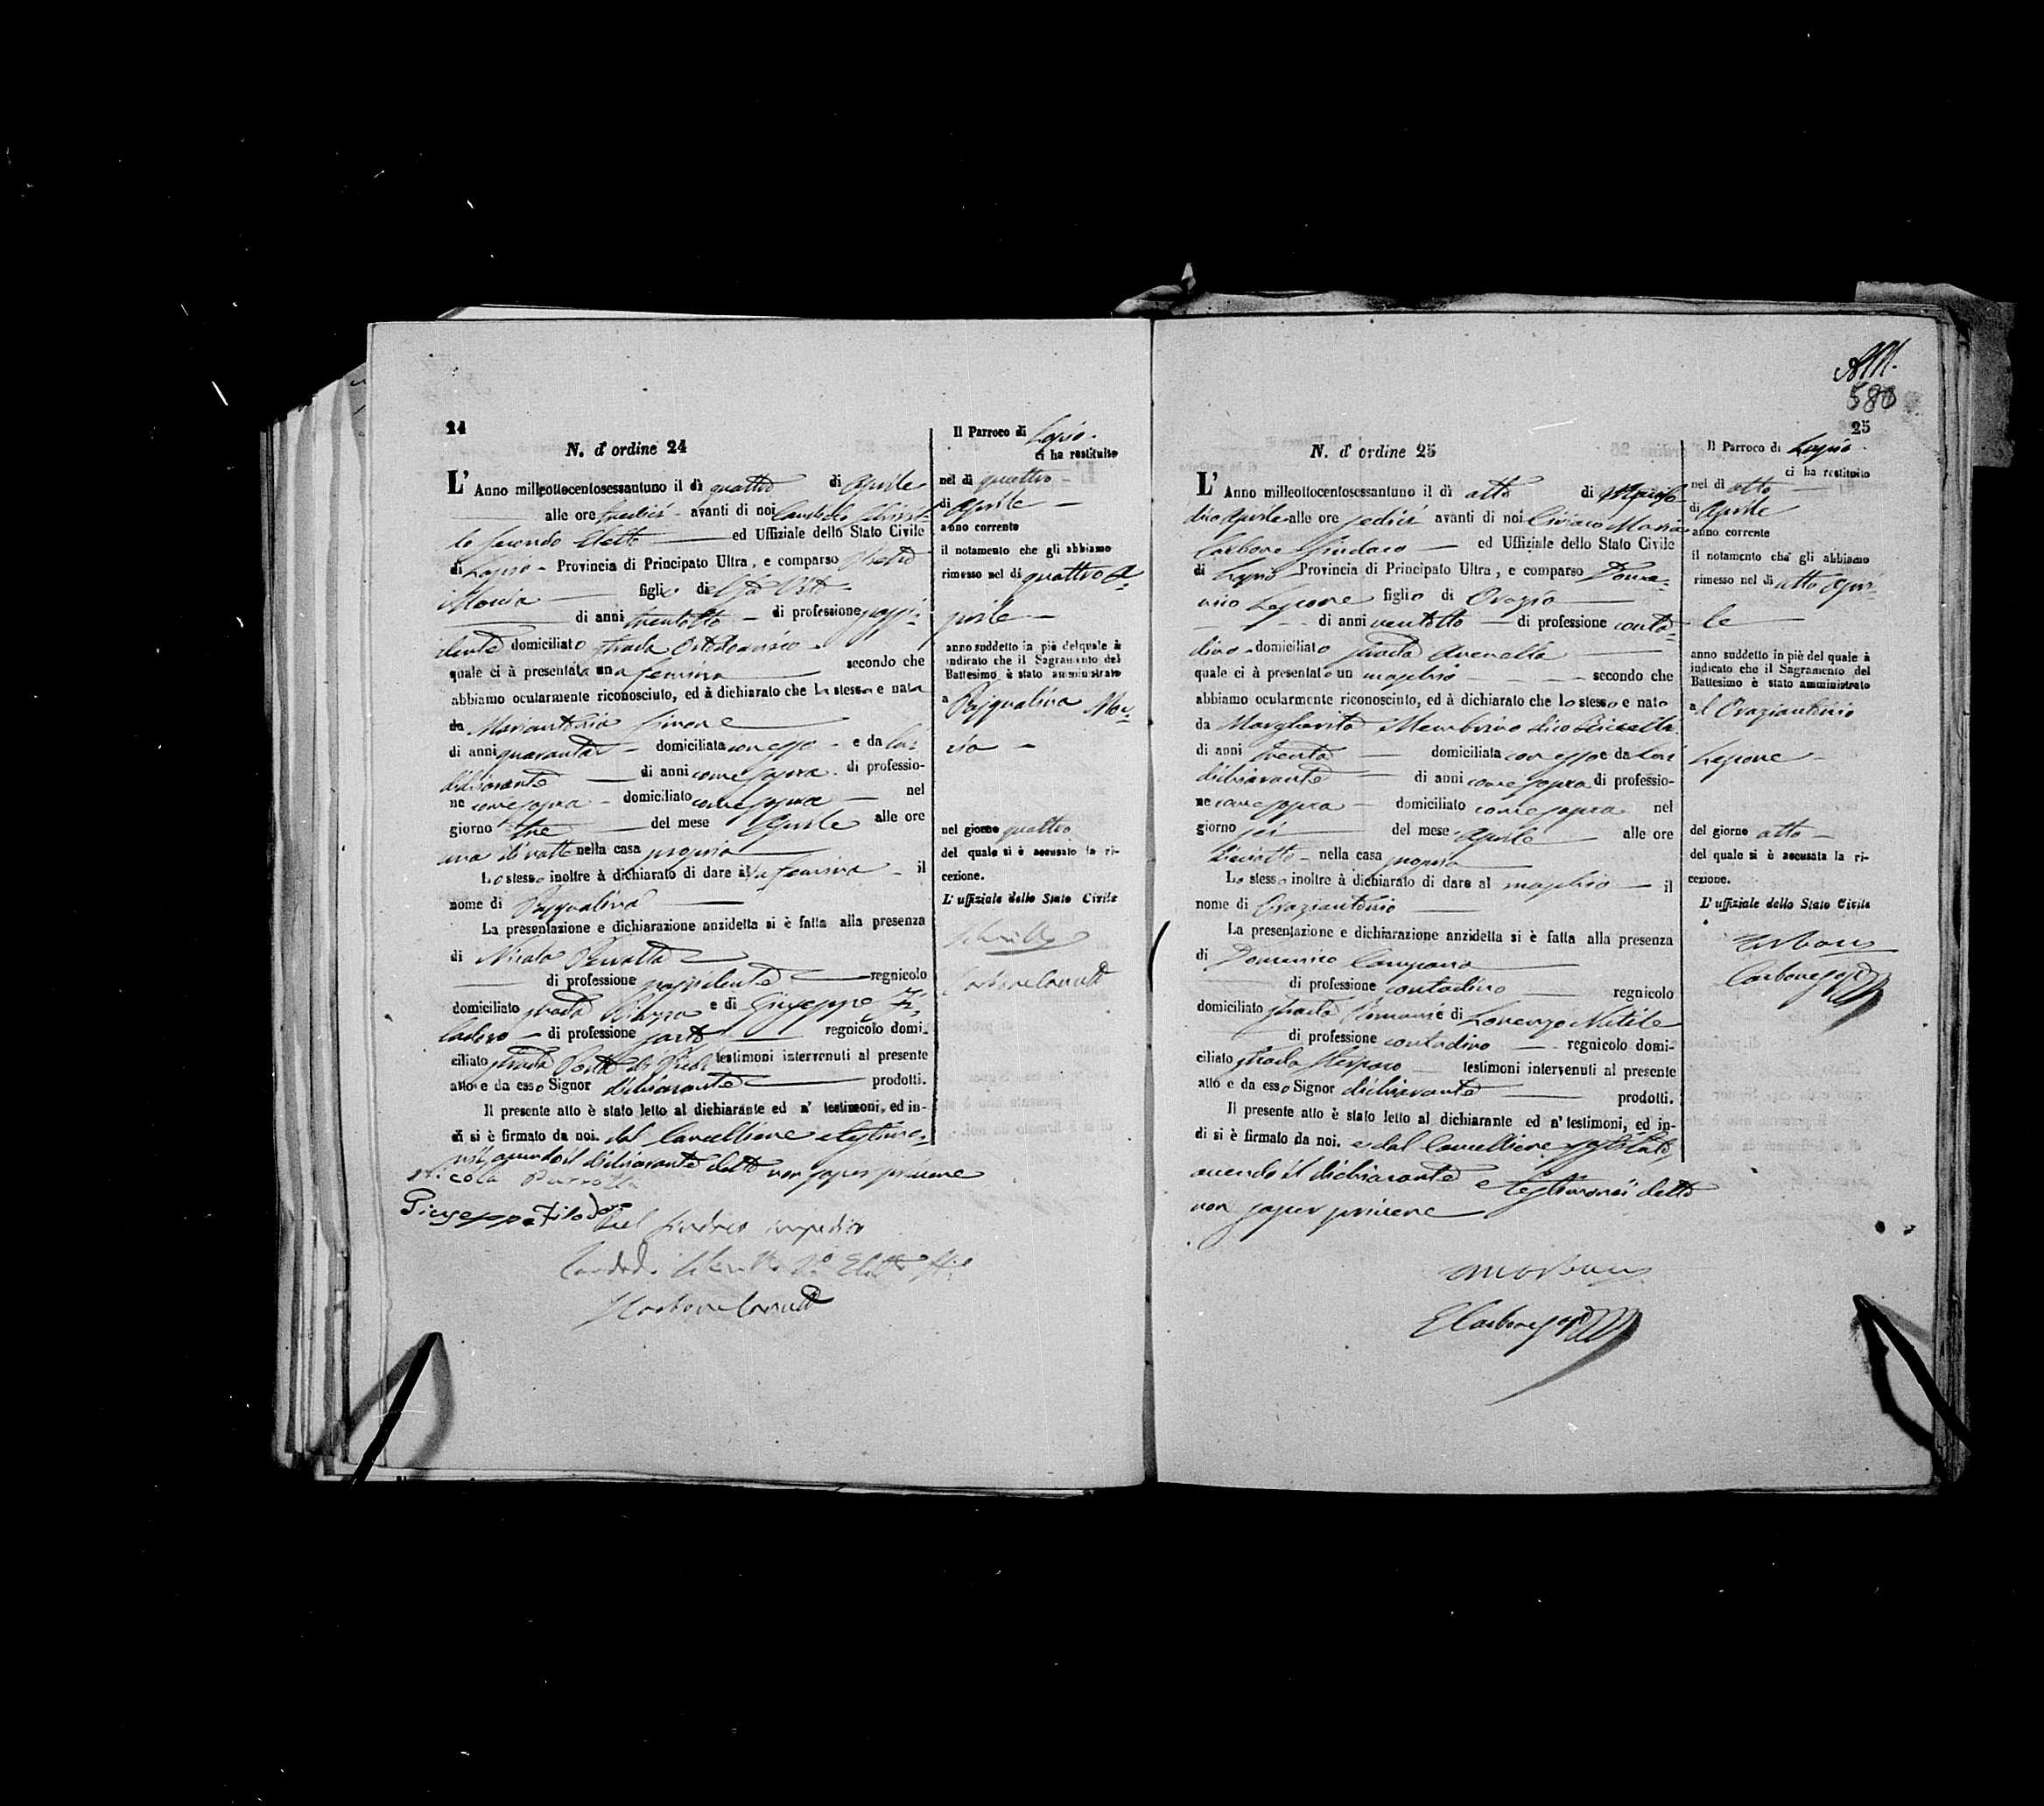 24
N. d' ordine 24
L' Anno milleottocentosessantuno il dì quattro di Aprile
alle ore tredici avanti di noi
secondo Eletto ed Uffiziale dello Stato Civile
di Lapio Provincia di Principato Ultra, e comparso
figlio di
di anni trentotto di professione possi-
dente domiciliato strada
quale ci à presentata una femina secondo che
abbiamo ocularmente riconosciuto, ed à dichiarato che La stessa e nata
da Mariantonia
di anni quaranta domiciliata con esso e da lui
dichiarante di anni come sopra di professio-
ne come sopra domiciliato come sopra nel
giorno tre del mese Aprile alle ore
una di notte nella casa propria
Lo stesso inoltre à dichiarato di dare alla femina il
nome di Pasqualina
La presentazione e dichiarazione anzidetta si è fatta alla presenza
di Nicola Perrotta
di professione possidente regnicolo
domiciliato strada Piazza e di Giuseppe Fi-
ladoro di professione sarto regnicolo domi-
ciliato strada Porta di testimoni intervenuti al presente
atto e da esso Signor dichiarante prodotti.
Il presente atto è stato letto al dichiarante ed a' testimoni, ed in-
di si è firmato da noi. dal Cancelliere e testimo-
nii, avendo il dichiarante detto non saper scrivere
Nicola Perrotta
Giuseppe Filadoro
Pel Sindaco impedito
Il Parroco di Lapio
ci ha restituito
nel dì quattro
di Aprile
anno corrente
il notamento che gli abbiamo
rimesso nel dì quattro A-
prile
anno suddetto in piè del quale à
indicato che il Sagramento del
Battesimo è stato amministrato
a Pasqualina Mo-
nel giorno quattro
del quale si è accusata la ri-
cezione.
L' uffiziale dello Stato Civile
580
25
N. d' ordine 25
L' Anno milleottocentosessantuno il dì otto di Marzo
dico Aprile alle ore sedici avanti di noi Ciriaco Maria
Carbone Sindaco ed Uffiziale dello Stato Civile
di Lapio Provincia di Principato Ultra, e comparso Dome-
nico Lepore figlio di Orazio
di anni ventotto di professione conta-
dino domiciliato strada Arenella
quale ci à presentato un maschio secondo che
abbiamo ocularmente riconosciuto, ed à dichiarato che Lo stesso e nato
da Margherita Membrino dico
di anni trenta domiciliata con esso e da lui
dichiarante di anni come sopra di professio-
ne come sopra domiciliato come sopra nel
giorno sei del mese Aprile alle ore
diciotto nella casa propria
Lo stesso inoltre à dichiarato di dare al maschio il
nome di Oraziantonio
La presentazione e dichiarazione anzidetta si è fatta alla presenza
di Domenico Campana
di professione contadino regnicolo
domiciliato strada e di Lorenzo Nitile
di professione contadino regnicolo domi-
ciliato strada testimoni intervenuti al presente
atto e da esso Signor dichiarante prodotti.
Il presente atto è stato letto al dichiarante ed a' testimoni, ed in-
di si è firmato da noi. e dal Cancelliere sostituto,
avendo il dichiarante e testimonii detto
non saper scrivere
Il Parroco di Lapio
ci ha restituito
nel dì otto
di Aprile
anno corrente
il notamento che gli abbiamo
rimesso nel dì otto Apri-
le
anno suddetto in piè del quale à
indicato che il Sagramento del
Battesimo è stato amministrato
al Oraziantonio
Lepore
del giorno otto
del quale si è accusata la ri-
cezione.
L' uffiziale dello Stato Civile